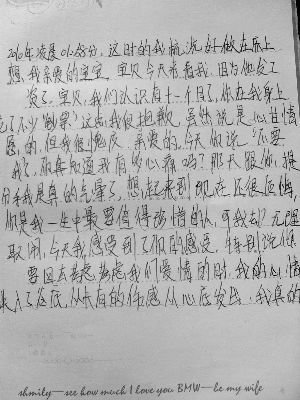 2010年凌晨01:28分,这时的我梳洗好做在床上
想,我亲爱的宝宝,宝贝今天来看我,因为他发工
资了.宝贝,我们认识有十一个月了,你在我身上
花了不少"割禁"这点我很抱歉,虽然说是心甘情
愿的,但我很愧疚.亲爱的,今天你说"不要
我了,你真知道我有多心痛吗?那天跟你提
分手我是真的气豪了,想起来到现在还很后悔,
你是我一生中最要值得珍惜的人,可我却无理
取闹,今天我感受到了你的感受,特别说你
要回去考虑考虑我们爱情的时,我的心情
跌入了谷底,从未有的伤感从心底发出,我真的
shmily—see how much I love you BMW—be my wife